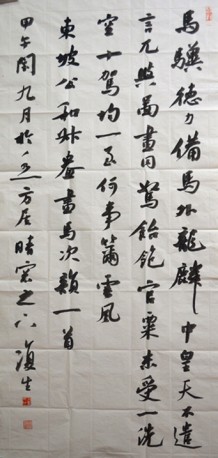 馬驥德力備馬外龍麟中皇天不遺
言兀與圖畫同駑駘飽官粟未受一洗
空十駕均一至何事籋雲風
東坡公和叔盎畫馬次韻一首
甲午閏九月於方居晴窗之下復生